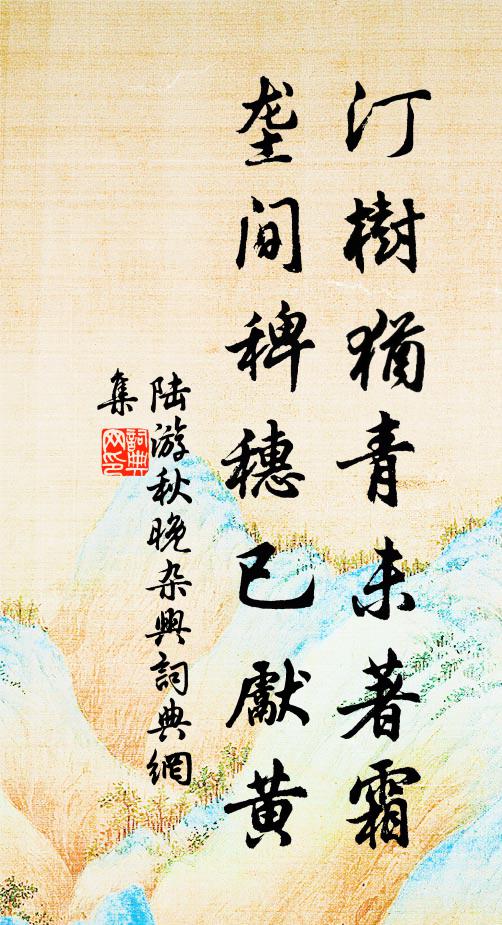 汀樹猶青未著霜
垄间稗穗已獻黃
陆游秋晚杂興詞典網
集
詞典
网印